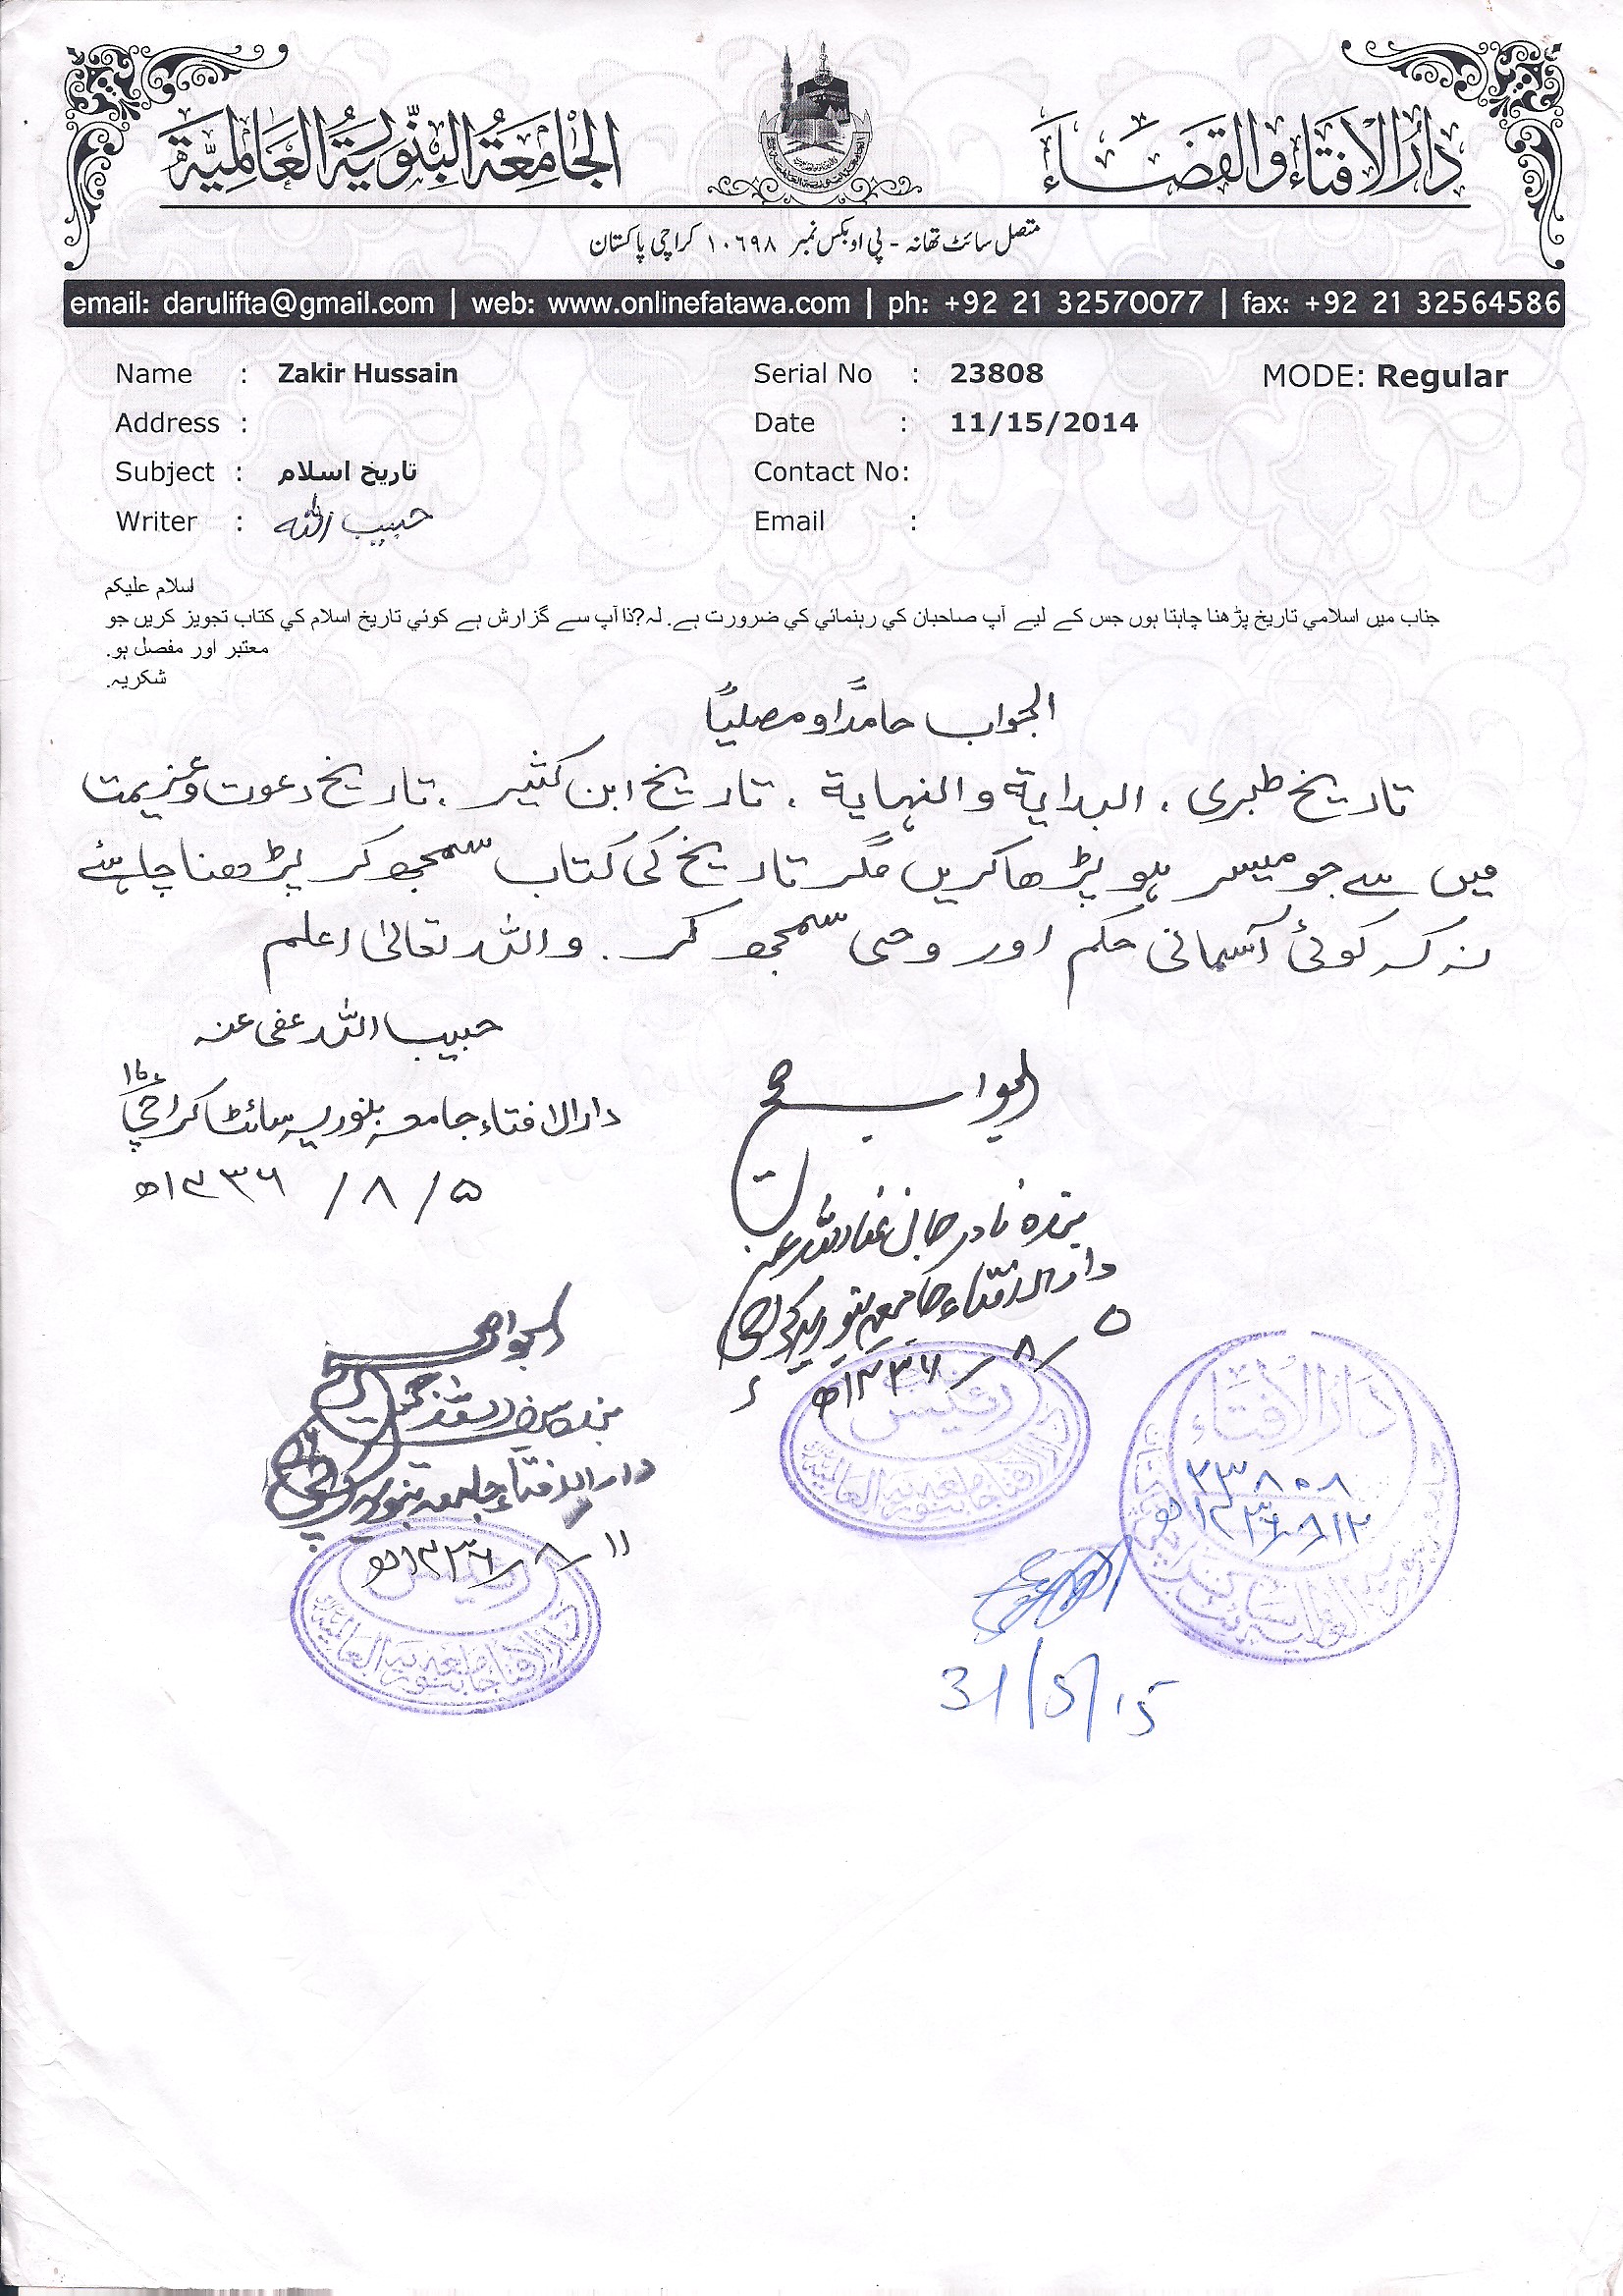 دارالافتاء والقضاء
الجامعة البنورية العالمية
متصل سائٹ تھانہ - پی او بکس نمبر ١٠٦٩٨ کراچی پاکستان
email: darulifta@gmail.com | web: www.onlinefatawa.com | ph: +92 21 32570077 | fax: +92 21 32564586
Name : Zakir Hussain Serial No : 23808 MODE: Regular
Address : Date : 11/15/2014
Subject : تاريخ اسلام Contact No:
Writer : حبیب اللہ Email :
اسلام عليکم
جناب ميں اسلامي تاريخ پڑھنا چاہتا ہوں جس کے ليے آپ صاحبان کي رہنمائي کي ضرورت ہے۔ لہ?ذا آپ سے گزارش ہے کوئي تاريخ اسلام کي کتاب تجويز کريں جو
معتبر اور مفصل ہو۔
شکريہ۔
الجواب حامدًا ومصلیًا
تاریخ طبری ، البدایة والنہایة ، تاریخ ابن کثیر ، تاریخ دعوت و عزیمت
میں سے جو میسر ہو پڑھا کریں مگر تاریخ کی کتاب سمجھ کر پڑھنا چاہئے
نہ کہ کوئی آسمانی حکم اور وحی سمجھ کر ۔ واللہ تعالیٰ اعلم
حبیب اللہ عفی عنہ
دارالافتاء جامعہ بنوریہ سائٹ کراچی
۵ / ۸ / ۱۴۳۶ھ
الجواب صحیح
بندہ نادر جان عفا اللہ عنہ
دارالافتاء جامعہ بنوریہ کراچی
۵ / ۸ / ۱۴۳۶ھ
رئیس
دارالافتاء جامعہ بنوریہ العالمیہ
الجواب صحیح
دارالافتاء جامعہ بنوریہ
۱۱ / ۸ / ۱۴۳۶ھ
رئیس
دارالافتاء جامعہ بنوریہ العالمیہ
دارالافتاء
۲۳۸۰۸
۱۲ / ۸ / ۱۴۳۶ھ
31/5/15